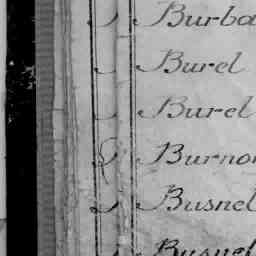 Burba
Burel
Burel
Burnon
Busnel
Busnel